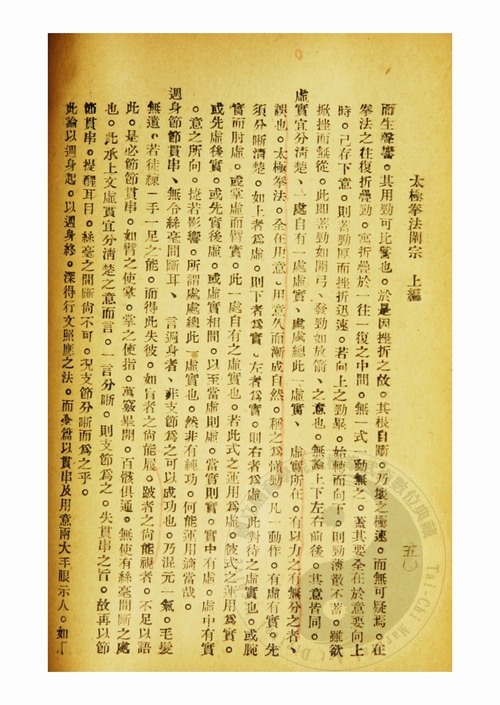 太極拳法闡宗 上編
五〇
而生聲響。其用勁可比響也。於是因挫折之故。其根自斷。乃壞之極速。而無可疑焉。在
拳法之往復折疊勁。寓折疊於一往一復之中間。無一式一動無之。蓋其要全在意要向上
時。己存下意。則著勁厚而挫折迅速。若向上之勁畢。始轉而向下。則勁薄散不著。雖欲
掀挫而無從。此即蓄勁如開弓、發勁如放箭、之意也。無論上下左右前後。其意皆同。
虛實宜分清楚、一處自有一處虛實、處處總此一虛實、 虛實所在。有以力之有無分之者、
誤也。太極拳法。全在用意。用意久而漸成自然。稱之爲懂勁。凡一動作。有虛有實。先
須分晰清楚。如上者爲虛。則下者爲實。左者爲實。則右者爲虛。此對待之虛實也。或腕
實而肘虛。或掌虛而指實。此一處自有之虛實也。若此式之運用爲虛。彼式之運用爲實。
或先虛後實。或先實後虛。或虛實相間。以至當虛則虛。當實則實。實中有虛。虛中有實
。意之所向。捷若影響。所謂處處總此一虛實也。然非有純功。何能運用適當哉。
週身節節貫串、無令絲毫間斷耳、 言週身者、非支節爲之可以成功也。乃混元一氣。毛髮
無遺。若徒練一手一足之能。而得此失彼。如盲者之尚能履。跛者之尚能視者。不足以語
此。是必節節貫串。如臂之使掌。掌之使指。萬竅畢開。百骸俱通。無使有絲毫間斷之處
也。此承上文虛實宜分清楚之意而言。一言分晰。則支節爲之。失貫串之旨。故再以節
節貫串。提醒耳目。絲毫之間斷尚不可。況支節分晰而爲之乎。
此論以週身起。以週身終。深得行文照應之法。而全篇以貫串及用意兩大手眼示人。如